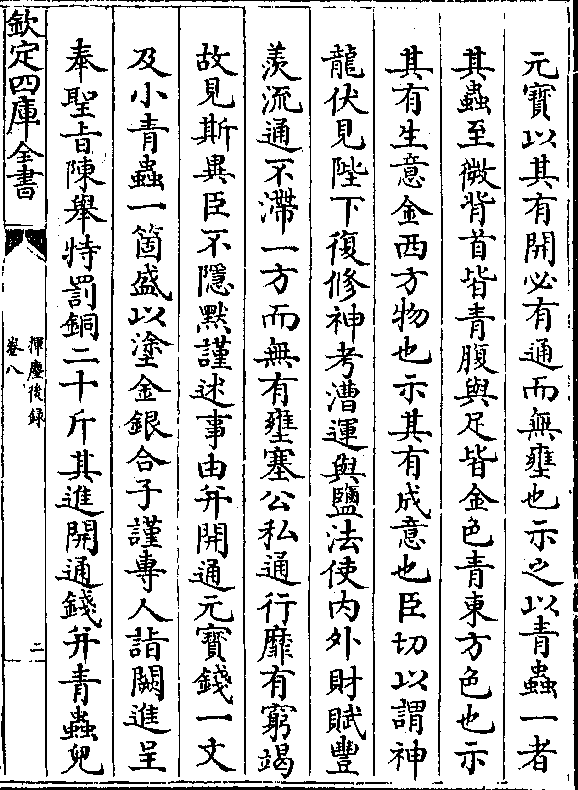 元寶以其有開必有通而無壅也示之以青蟲一者
其蟲至微背首皆青腹與足皆金色青東方色也示
其有生意金西方物也示其有成意也臣切以謂神
龍伏見陛下復修神考漕運與鹽法使内外財賦豐
羨流通不滯一方而無有壅塞公私通行靡有窮竭
故見斯異臣不隱默謹述事由并開通元寶錢一文
及小青蟲一箇盛以塗金銀合子謹專人詣闕進呈
奉聖旨陳舉特罰銅二十斤其進開通錢并青蟲兒
欽定四庫全書
揮麈後録
卷八
二